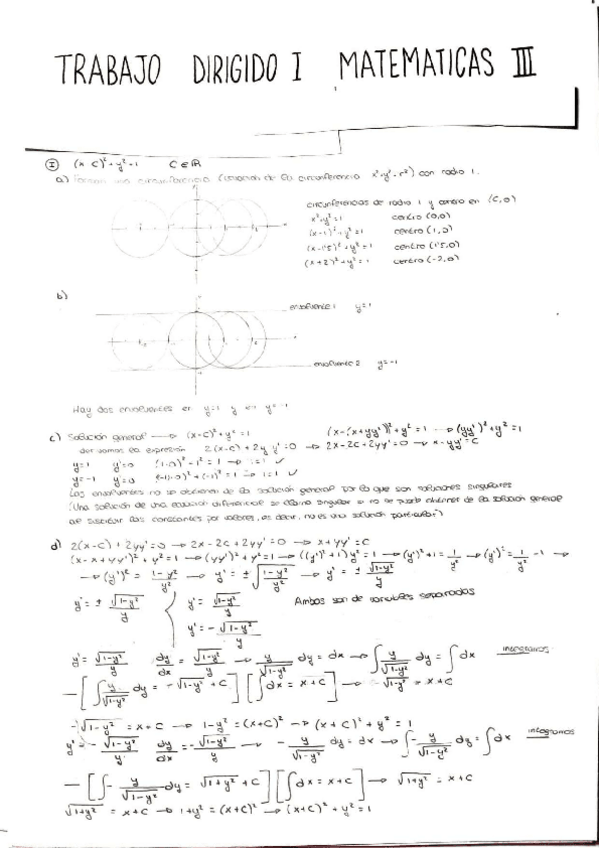 TRABAJO DIRIGIDO I MATEMATICAS III
I (x C)² + y² = 1 C ∈ ℝ
a) Forman una circunferencia (ecuación de la circunferencia x²+y²=r²) con radio 1.
circunferencias de radio 1 y centro en (C,0)
x²+y²=1 centro (0,0)
(x-1)²+y²=1 centro (1,0)
(x-1'5)²+y²=1 centro (1'5,0)
(x+2)²+y²=1 centro (-2,0)
b)
envolvente 1 y=1
envolvente 2 y=-1
Hay dos envolventes en y=1 y en y=-1
c) Solución general → (x-C)²+y²=1 (x-(x+yy'))²+y²=1 → (yy')²+y²=1
derivamos la expresión 2(x-C)+2y y'=0 → 2x-2C+2yy'=0 → x-yy'=C
y=1 y'=0 1=1 ✓
y=-1 y'=0 1=1 ✓
Las envolventes no se obtienen de la solución general por lo que son soluciones singulares
(Una solución de una ecuación diferencial se llama singular si no se puede obtener de la solución general
al sustituir las constantes por valores, es decir, no es una solución particular)
d) 2(x-C)+2yy'=0 → 2x-2C+2yy'=0 → x+yy'=C
(x-x+yy')²+y²=1 → (yy')²+y²=1 → ((y')²+1)y²=1 → (y')²+1=1/y² → (y')²=1/y² -1 →
→ (y')² = (1-y²)/y² → y' = ±√((1-y²)/y²) → y' = ± √(1-y²)/y
y' = ± √(1-y²)/y y' = √(1-y²)/y Ambos son de variables separadas
y' = - √(1-y²)/y
y' = √(1-y²)/y dy/dx = √(1-y²)/y → y/√(1-y²) dy = dx → ∫ y/√(1-y²) dy = ∫ dx integramos
- [∫ y/√(1-y²) dy = -√(1-y²) + C] [∫ dx = x+C] → -√(1-y²) = x+C
-√(1-y²) = x+C → 1-y² = (x+C)² → (x+C)² + y² = 1
y' = - √(1-y²)/y dy/dx = -√(1-y²)/y → - y/√(1-y²) dy = dx → ∫ - y/√(1-y²) dy = ∫dx integramos
- [∫ - y/√(1-y²) dy = √(1+y²) + C] [∫ dx = x+C] → √(1+y²) = x+C
√(1+y²) = x+C → 1+y² = (x+C)² → (x+C)² + y² = 1